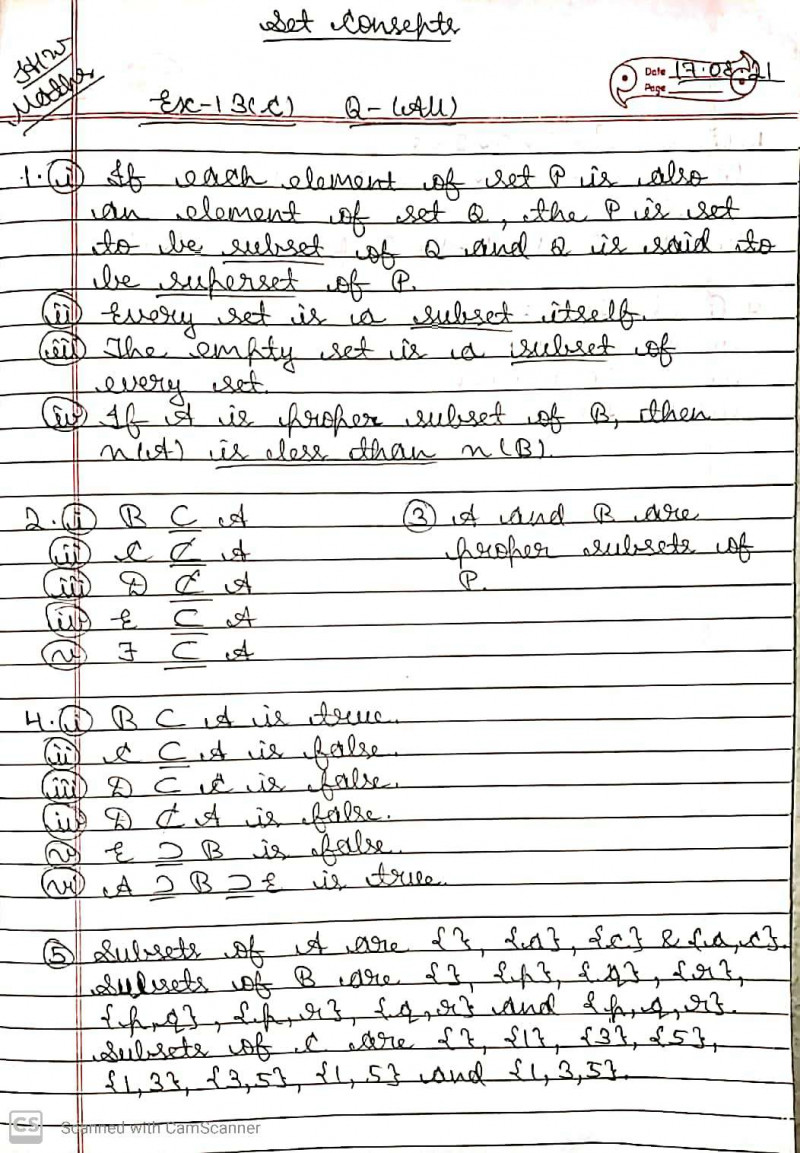 Set Consepts
H.W
Maths
Date 17.08.21
Page
Ex-13(C) Q-(All)
1. (i) If each element of set P is also
an element of set Q, the P is set
to be subset of Q and Q is said to
be superset of P.
(ii) Every set is a subset itself.
(iii) The empty set is a subset of
every set.
(iv) If A is proper subset of B, then
n(A) is less than n(B).
2. (i) B ⊆ A
(ii) C ⊈ A
(iii) D ⊈ A
(iv) E ⊆ A
(v) F ⊆ A
(3) A and B are
proper subsets of
P.
4. (i) B ⊂ A is true.
(ii) C ⊆ A is false.
(iii) D ⊂ C is false.
(iv) D ⊄ A is false.
(v) E ⊇ B is false.
(vi) A ⊇ B ⊇ E is true.
(5) Subsets of A are { }, {a}, {c} & {a,c}.
Subsets of B are { }, {p}, {q}, {r},
{p,q}, {p,r}, {q,r} and {p,q,r}.
Subsets of C are { }, {1}, {3}, {5},
{1,3}, {3,5}, {1,5} and {1,3,5}.
CS Scanned with CamScanner